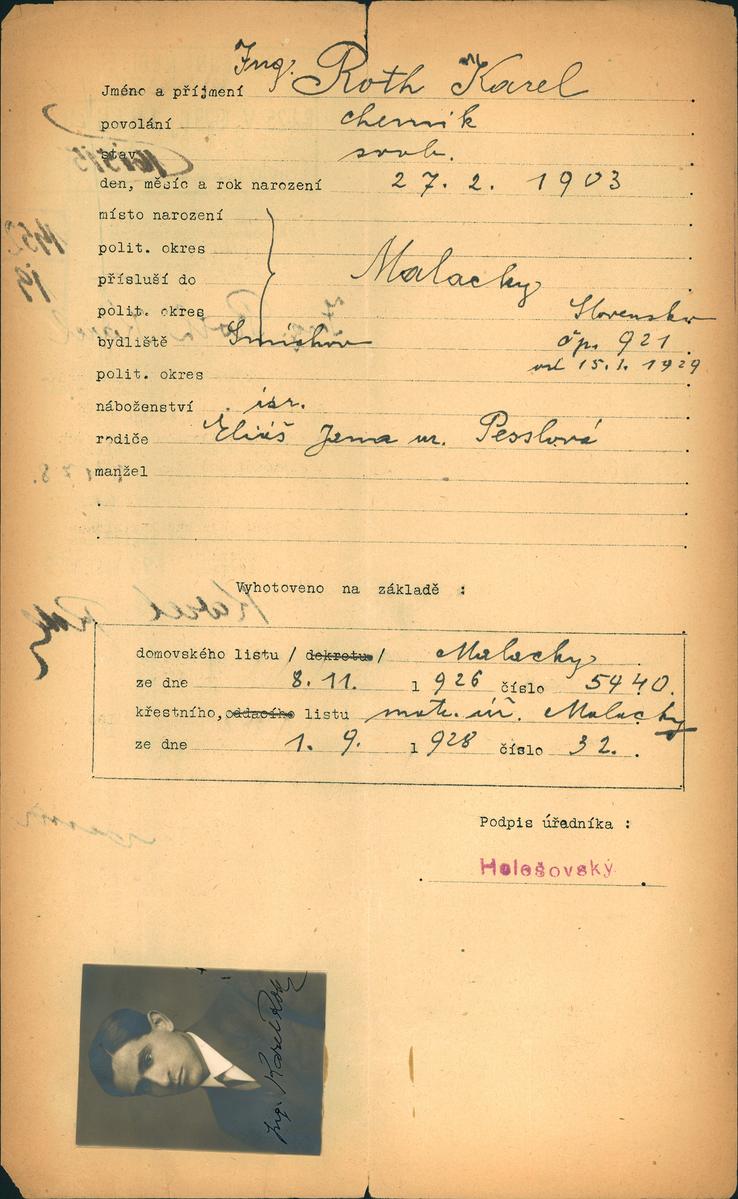 Jméno a příjmení Ing. Roth Karel
povolání chemik
stav svob.
den, měsíc a rok narození 27. 2. 1903
místo narození
polit. okres
přísluší do Malacky
polit. okres Slovensko
bydliště Smíchov čp. 921
od 15.1. 1929
polit. okres
náboženství isr.
rodiče Eliáš Jana r. Pesslová
manžel
Vyhotoveno na základě :
domovského listu / dekretu / Malacky
ze dne 8. 11. 1 926 číslo 5440.
křestního, oddacího listu matr. úř. Malacky
ze dne 1. 9. 1 928 číslo 32.
Podpis úředníka :
Holešovský
Ing. Karel Roth